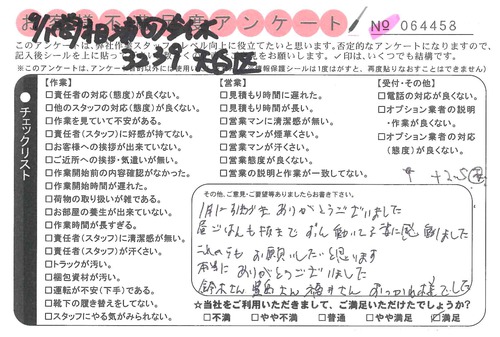 お客様不満足度アンケート
№ 064458
このアンケートは、弊社作業スタッフのレベル向上に役立てたいと思います。否定的なアンケートになりますので、
記入後シールを上に貼って をお願いします。✓印は、いくつでも結構です。
※このアンケートは、アンケート目的以外には使用い 報保護シールは1度はがすと、再度貼りなおすことはできません)
チェックリスト
【作業】
□責任者の対応(態度)が良くない。
□他のスタッフの対応(態度)が良くない。
□作業を見ていて不安がある。
□責任者(スタッフ)に好感が持てない。
□お客様への挨拶が出来ていない。
□ご近所への挨拶・気遣いが無い。
□作業開始前の内容確認がなかった。
□作業開始時間が遅れた。
□荷物の取り扱いが雑である。
□お部屋の養生が出来ていない。
□作業時間が長すぎる。
□責任者(スタッフ)に清潔感が無い。
□責任者(スタッフ)が汗くさい。
□トラックが汚い。
□梱包資材が汚い。
□運転が不安(下手)である。
□靴下の履き替えをしてない。
□スタッフにやる気がみられない。
【営業】
□見積もり時間に遅れた。
□見積もり時間が長い。
□営業マンに清潔感が無い。
□営業マンが煙草くさい。
□営業マンが汗くさい。
□営業態度が良くない。
□営業の説明と作業が一致してない。
【受付・その他】
□電話の対応が良くない。
□オプション業者の説明
・作業が良くない。
□オプション業者の対応
(態度)が良くない。
その他、ご意見・ご要望等ありましたらお書き下さい。
ありがとうございました
昼ごはんも 働いて 感動しました
お願いしたいと思います
本当にありがとうございました
鈴木さん さん さん おつかれ様でした
☆当社をご利用いただきまして、ご満足いただけたでしょうか?
□不満 □やや不満 □普通 □やや満足 ☑満足